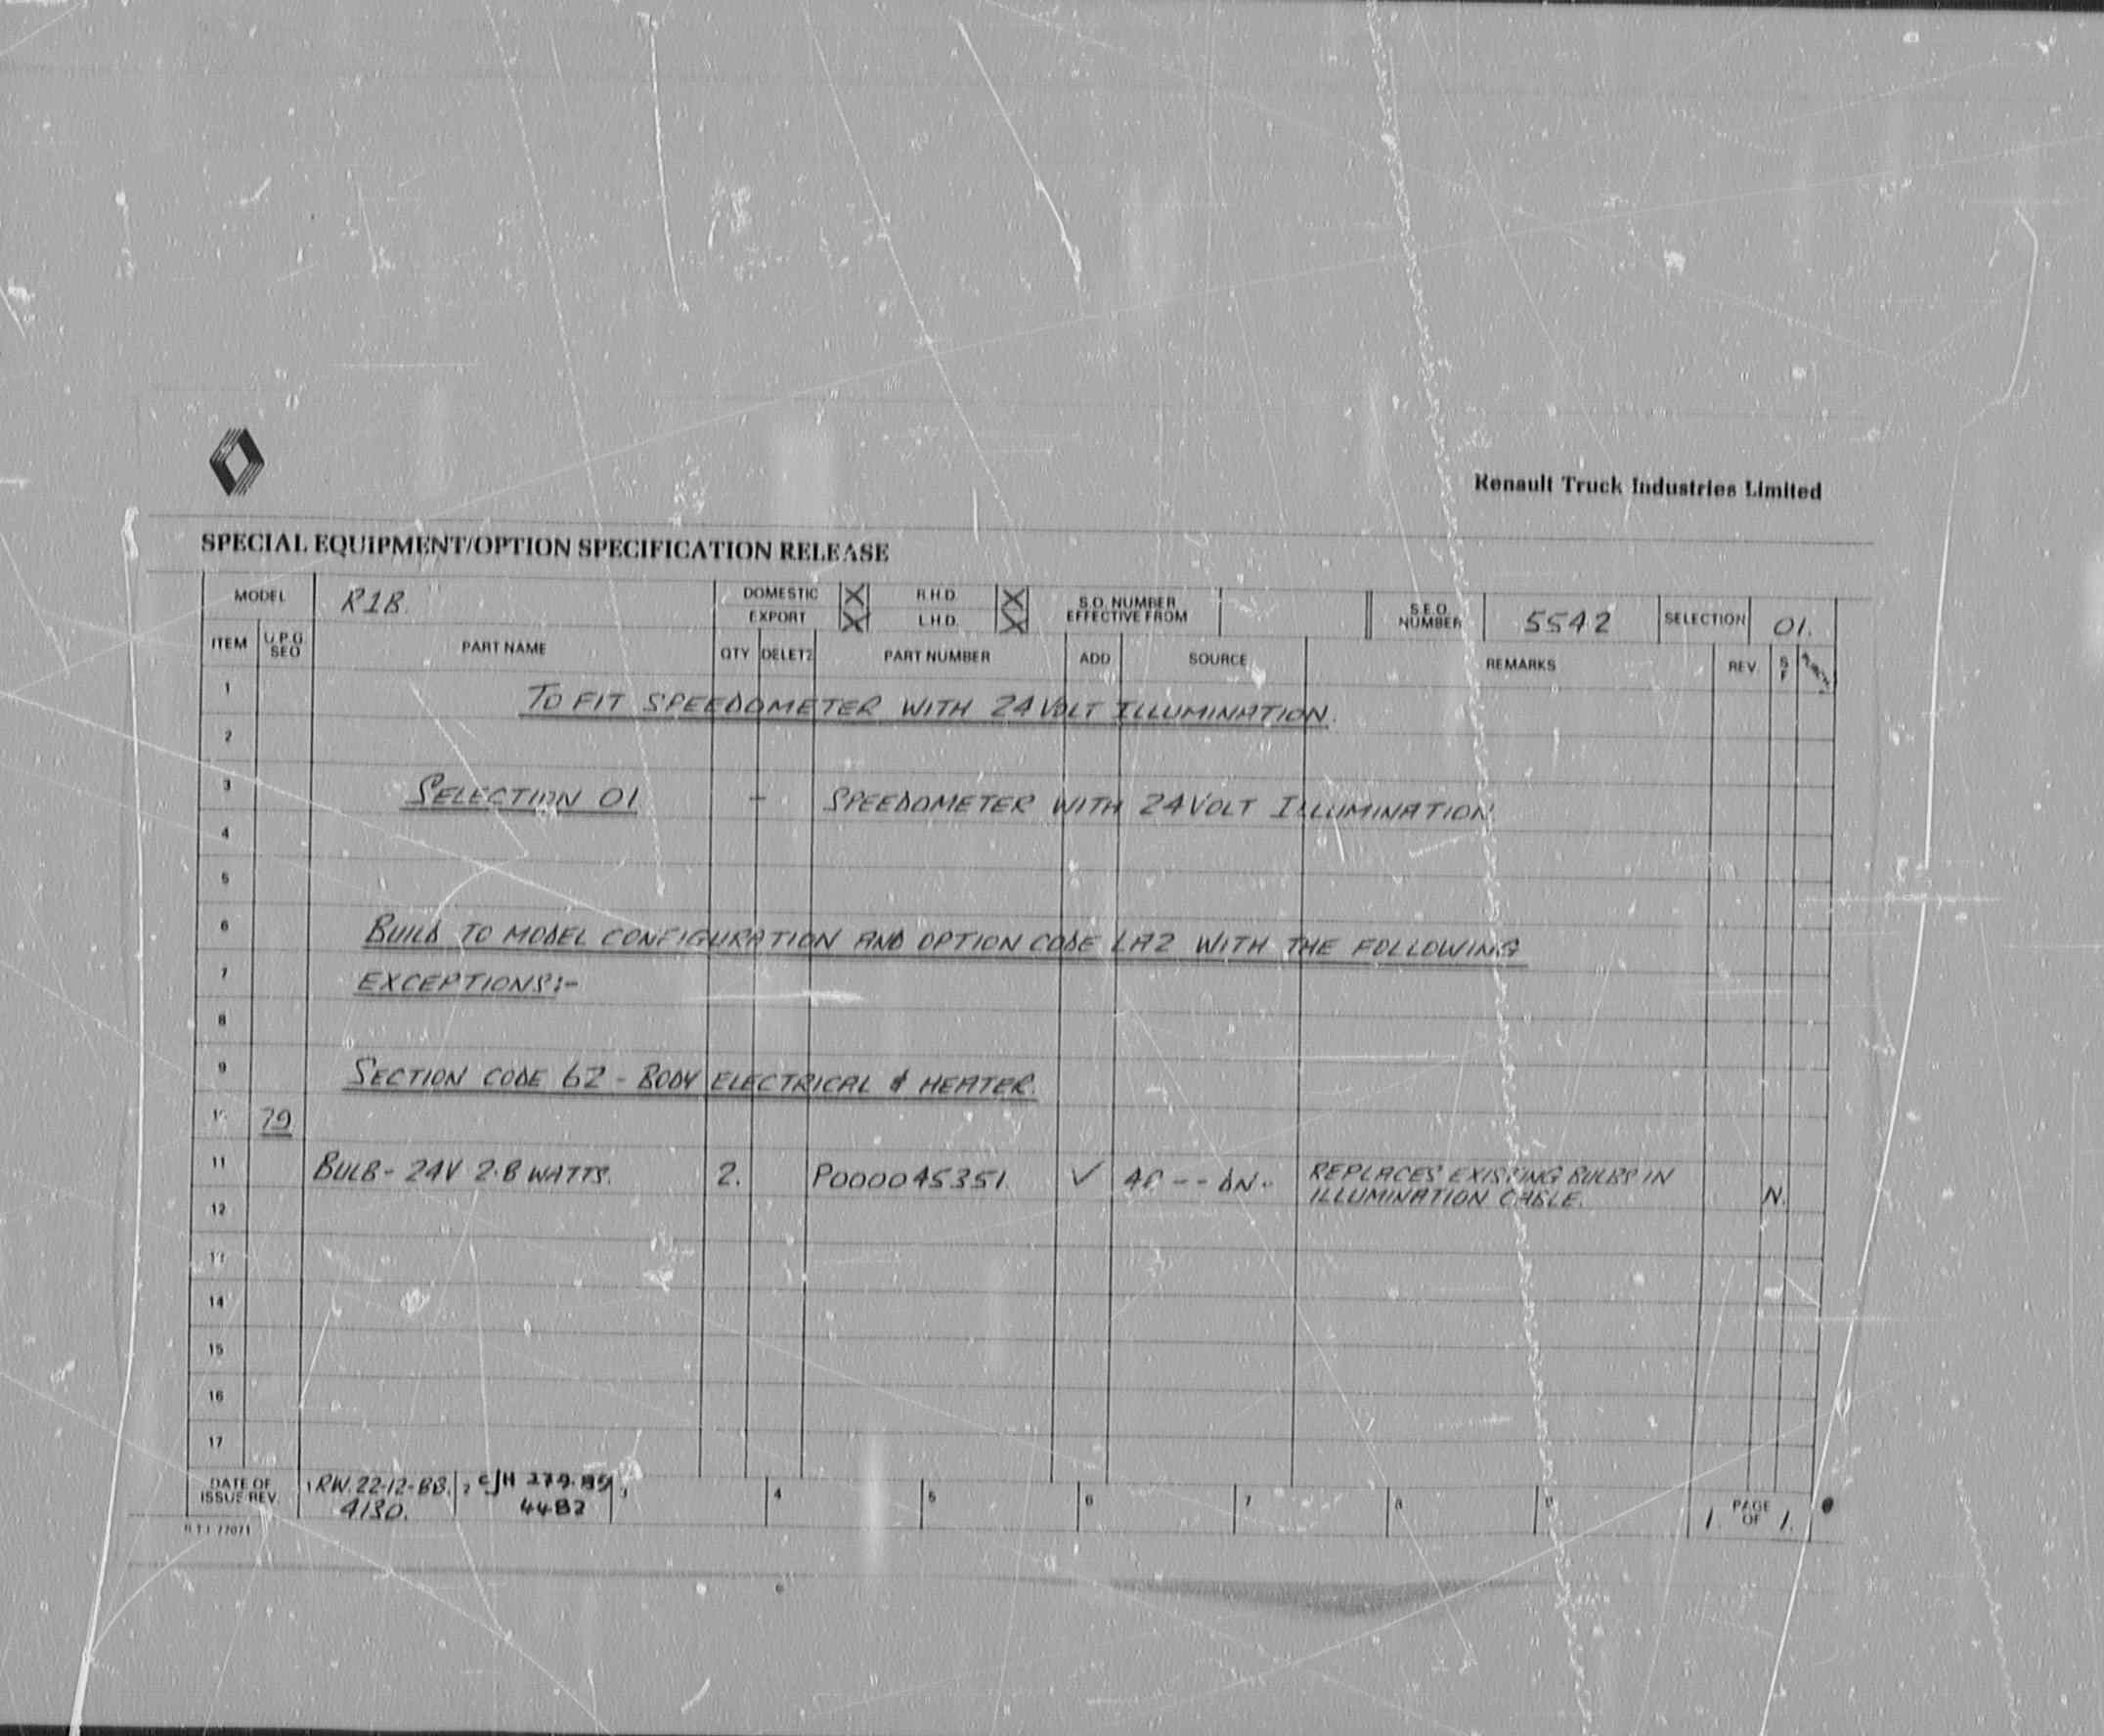 Renault Truck Industries Limited
SPECIAL EQUIPMENT/OPTION SPECIFICATION RELEASE
MODEL R1B. DOMESTIC X R.H.D. X S.O. NUMBER EFFECTIVE FROM S.E.O. NUMBER 5542 SELECTION 01.
EXPORT X L.H.D. X
ITEM U.P.G SEO PART NAME QTY DELETE PART NUMBER ADD SOURCE REMARKS REV. S F
1 TO FIT SPEEDOMETER WITH 24 VOLT ILLUMINATION.
2
3 SELECTION 01 - SPEEDOMETER WITH 24 VOLT ILLUMINATION
4
5
6 BUILD TO MODEL CONFIGURATION AND OPTION CODE LA2 WITH THE FOLLOWING
7 EXCEPTIONS:-
8
9 SECTION CODE 62 - BODY ELECTRICAL & HEATER.
10 79
11 BULB - 24V 2.8 WATTS. 2. P000045351. ✓ REPLACES EXISTING BULBS IN
12 ILLUMINATION CABLE. N.
13
14
15
16
17
DATE OF ISSUE/REV. 1 RW. 22-12-88. 2 CJH 3 4 5 6 7 8 9 1 PAGE OF 1.
4130. 4482
R.T.I. 77071